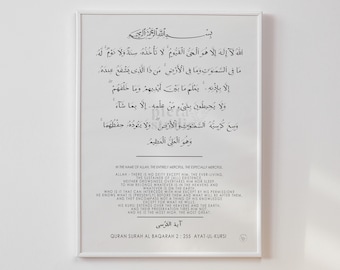 بِسْمِ اللَّهِ الرَّحْمَٰنِ الرَّحِيمِ
اللَّهُ لَا إِلَٰهَ إِلَّا هُوَ الْحَيُّ الْقَيُّومُ لَا تَأْخُذُهُ سِنَةٌ وَلَا نَوْمٌ لَهُ
مَا فِي السَّمَاوَاتِ وَمَا فِي الْأَرْضِ مَنْ ذَا الَّذِي يَشْفَعُ عِنْدَهُ
إِلَّا بِإِذْنِهِ يَعْلَمُ مَا بَيْنَ أَيْدِيهِمْ وَمَا خَلْفَهُمْ
وَلَا يُحِيطُونَ بِشَيْءٍ مِنْ عِلْمِهِ إِلَّا بِمَا شَاءَ
وَسِعَ كُرْسِيُّهُ السَّمَاوَاتِ وَالْأَرْضَ وَلَا يَئُودُهُ حِفْظُهُمَا
وَهُوَ الْعَلِيُّ الْعَظِيمُ
IN THE NAME OF ALLAH, THE ENTIRELY MERCIFUL, THE ESPECIALLY MERCIFUL.
ALLAH - THERE IS NO DEITY EXCEPT HIM, THE EVER-LIVING,
THE SUSTAINER OF EXISTENCE.
NEITHER DROWSINESS OVERTAKES HIM NOR SLEEP.
TO HIM BELONGS WHATEVER IS IN THE HEAVENS AND
WHATEVER IS ON THE EARTH.
WHO IS IT THAT CAN INTERCEDE WITH HIM EXCEPT BY HIS PERMISSION?
HE KNOWS WHAT IS BEFORE THEM AND WHAT WILL BE AFTER THEM,
AND THEY ENCOMPASS NOT A THING OF HIS KNOWLEDGE
EXCEPT FOR WHAT HE WILLS.
HIS KURSI EXTENDS OVER THE HEAVENS AND THE EARTH,
AND THEIR PRESERVATION TIRES HIM NOT.
AND HE IS THE MOST HIGH, THE MOST GREAT.
آية الكرسي
QURAN SURAH AL BAQARAH 2 : 255 AYAT-UL-KURSI